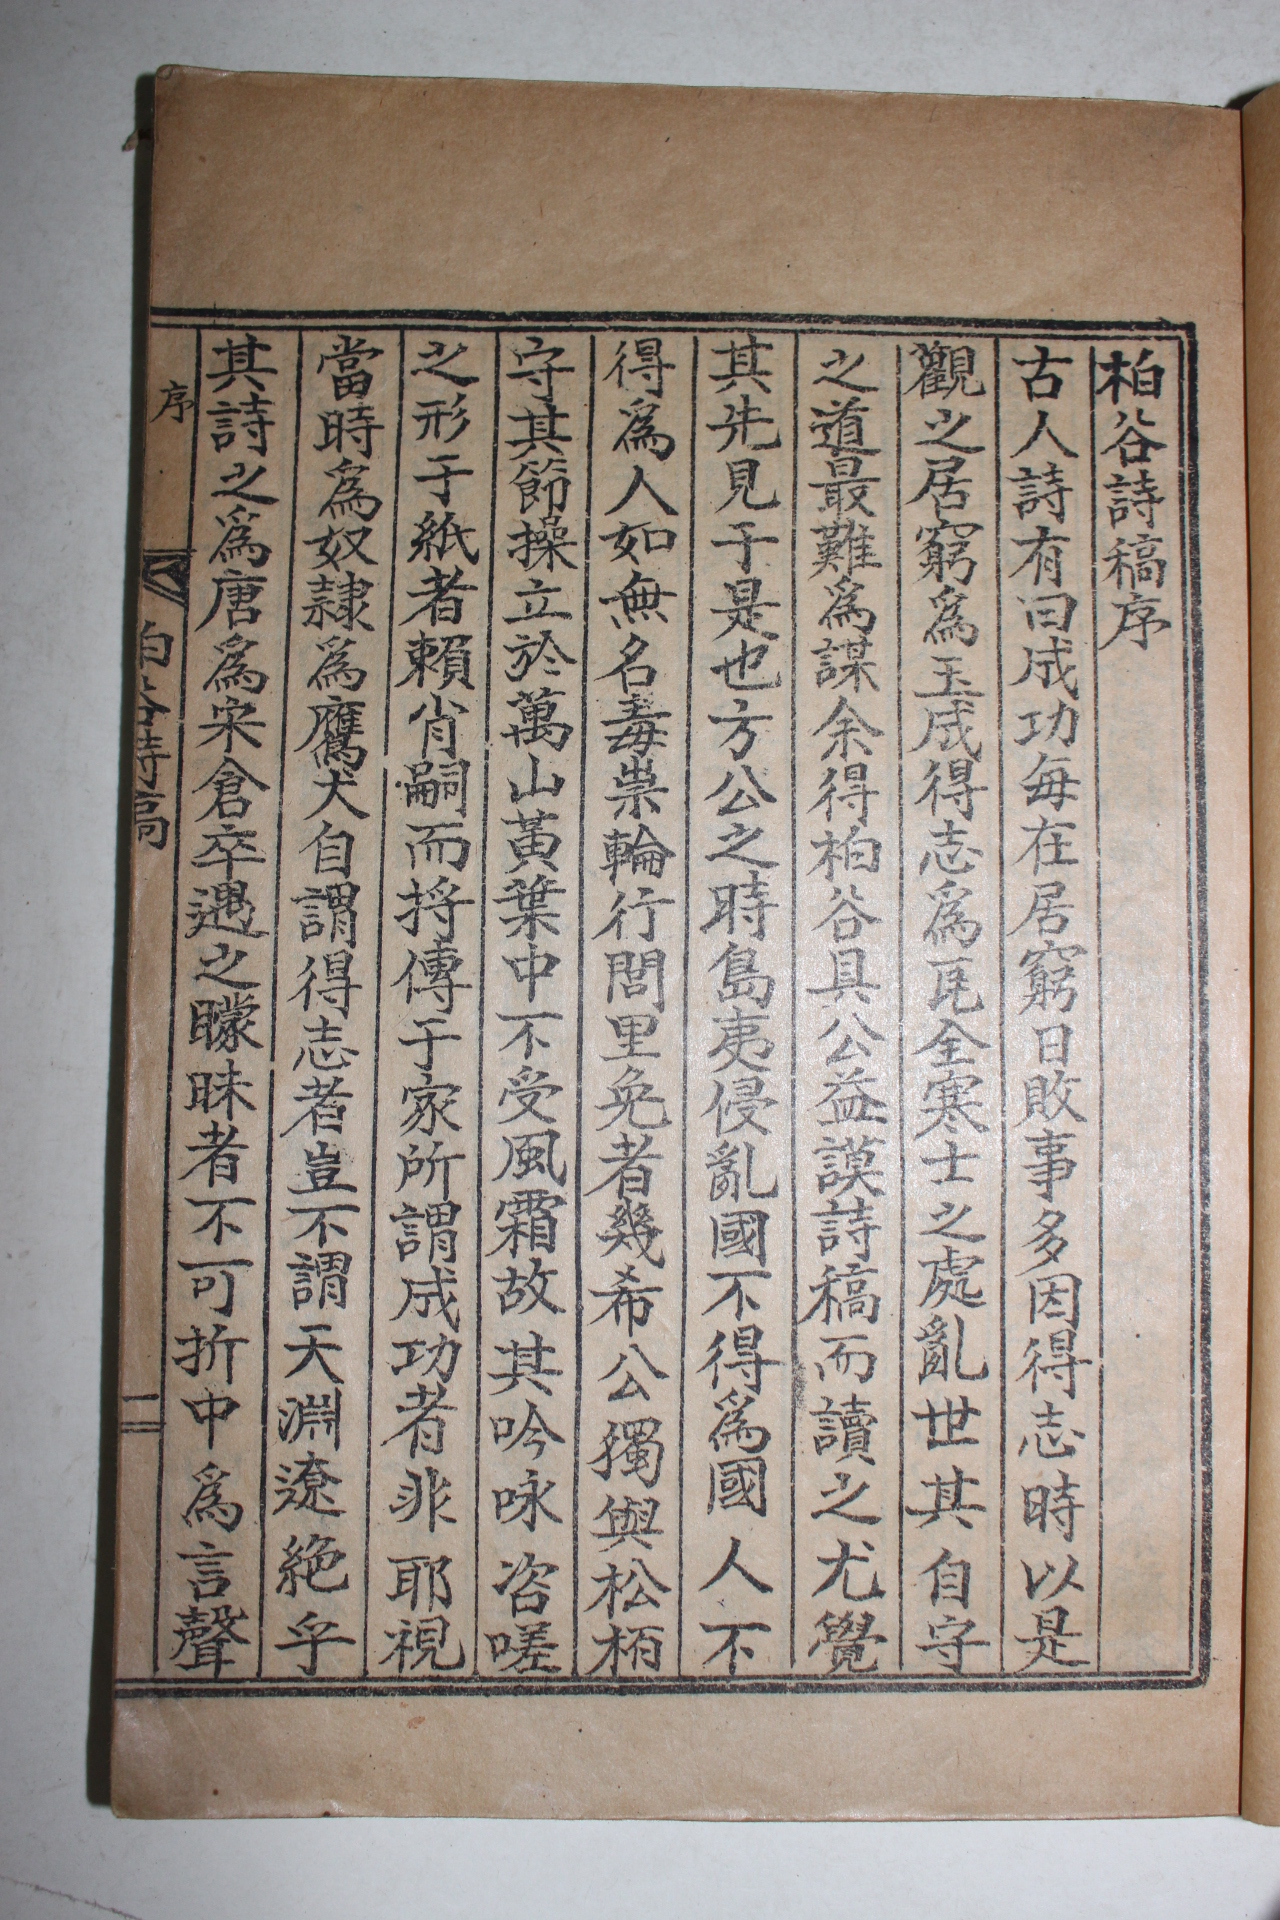 柏谷詩稿序
古人詩有曰成功每在居窮日敗事多因得志時以是
觀之居窮爲玉成得志爲瓦全寒士之處亂世其自守
之道最難爲謀余得柏谷具公益謨詩稿而讀之尤覺
其先見于是也方公之時島夷侵亂國不得爲國人不
得爲人如無名毒祟輪行閭里免者幾希公獨與松栢
守其節操立於萬山黃葉中不受風霜故其吟咏咨嗟
之形于紙者賴肖嗣而將傳于家所謂成功者非耶視
當時爲奴隷爲鷹犬自謂得志者豈不謂天淵遼絶乎
其詩之爲唐爲宋倉卒遇之矇昧者不可折中爲言聲
序
柏谷詩稿
一